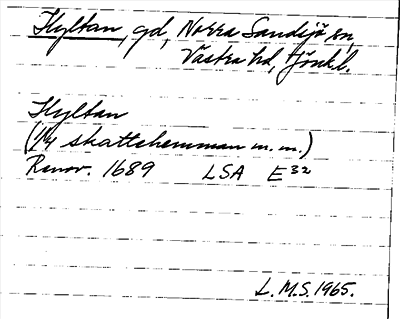 Hyltan, gd, Norra Sandsjö sn,
Västra hd, Jönkl.
Hyltan
(1/4 skattehemman m.m.)
Renov. 1689 LSA E32
L.M.S. 1965.